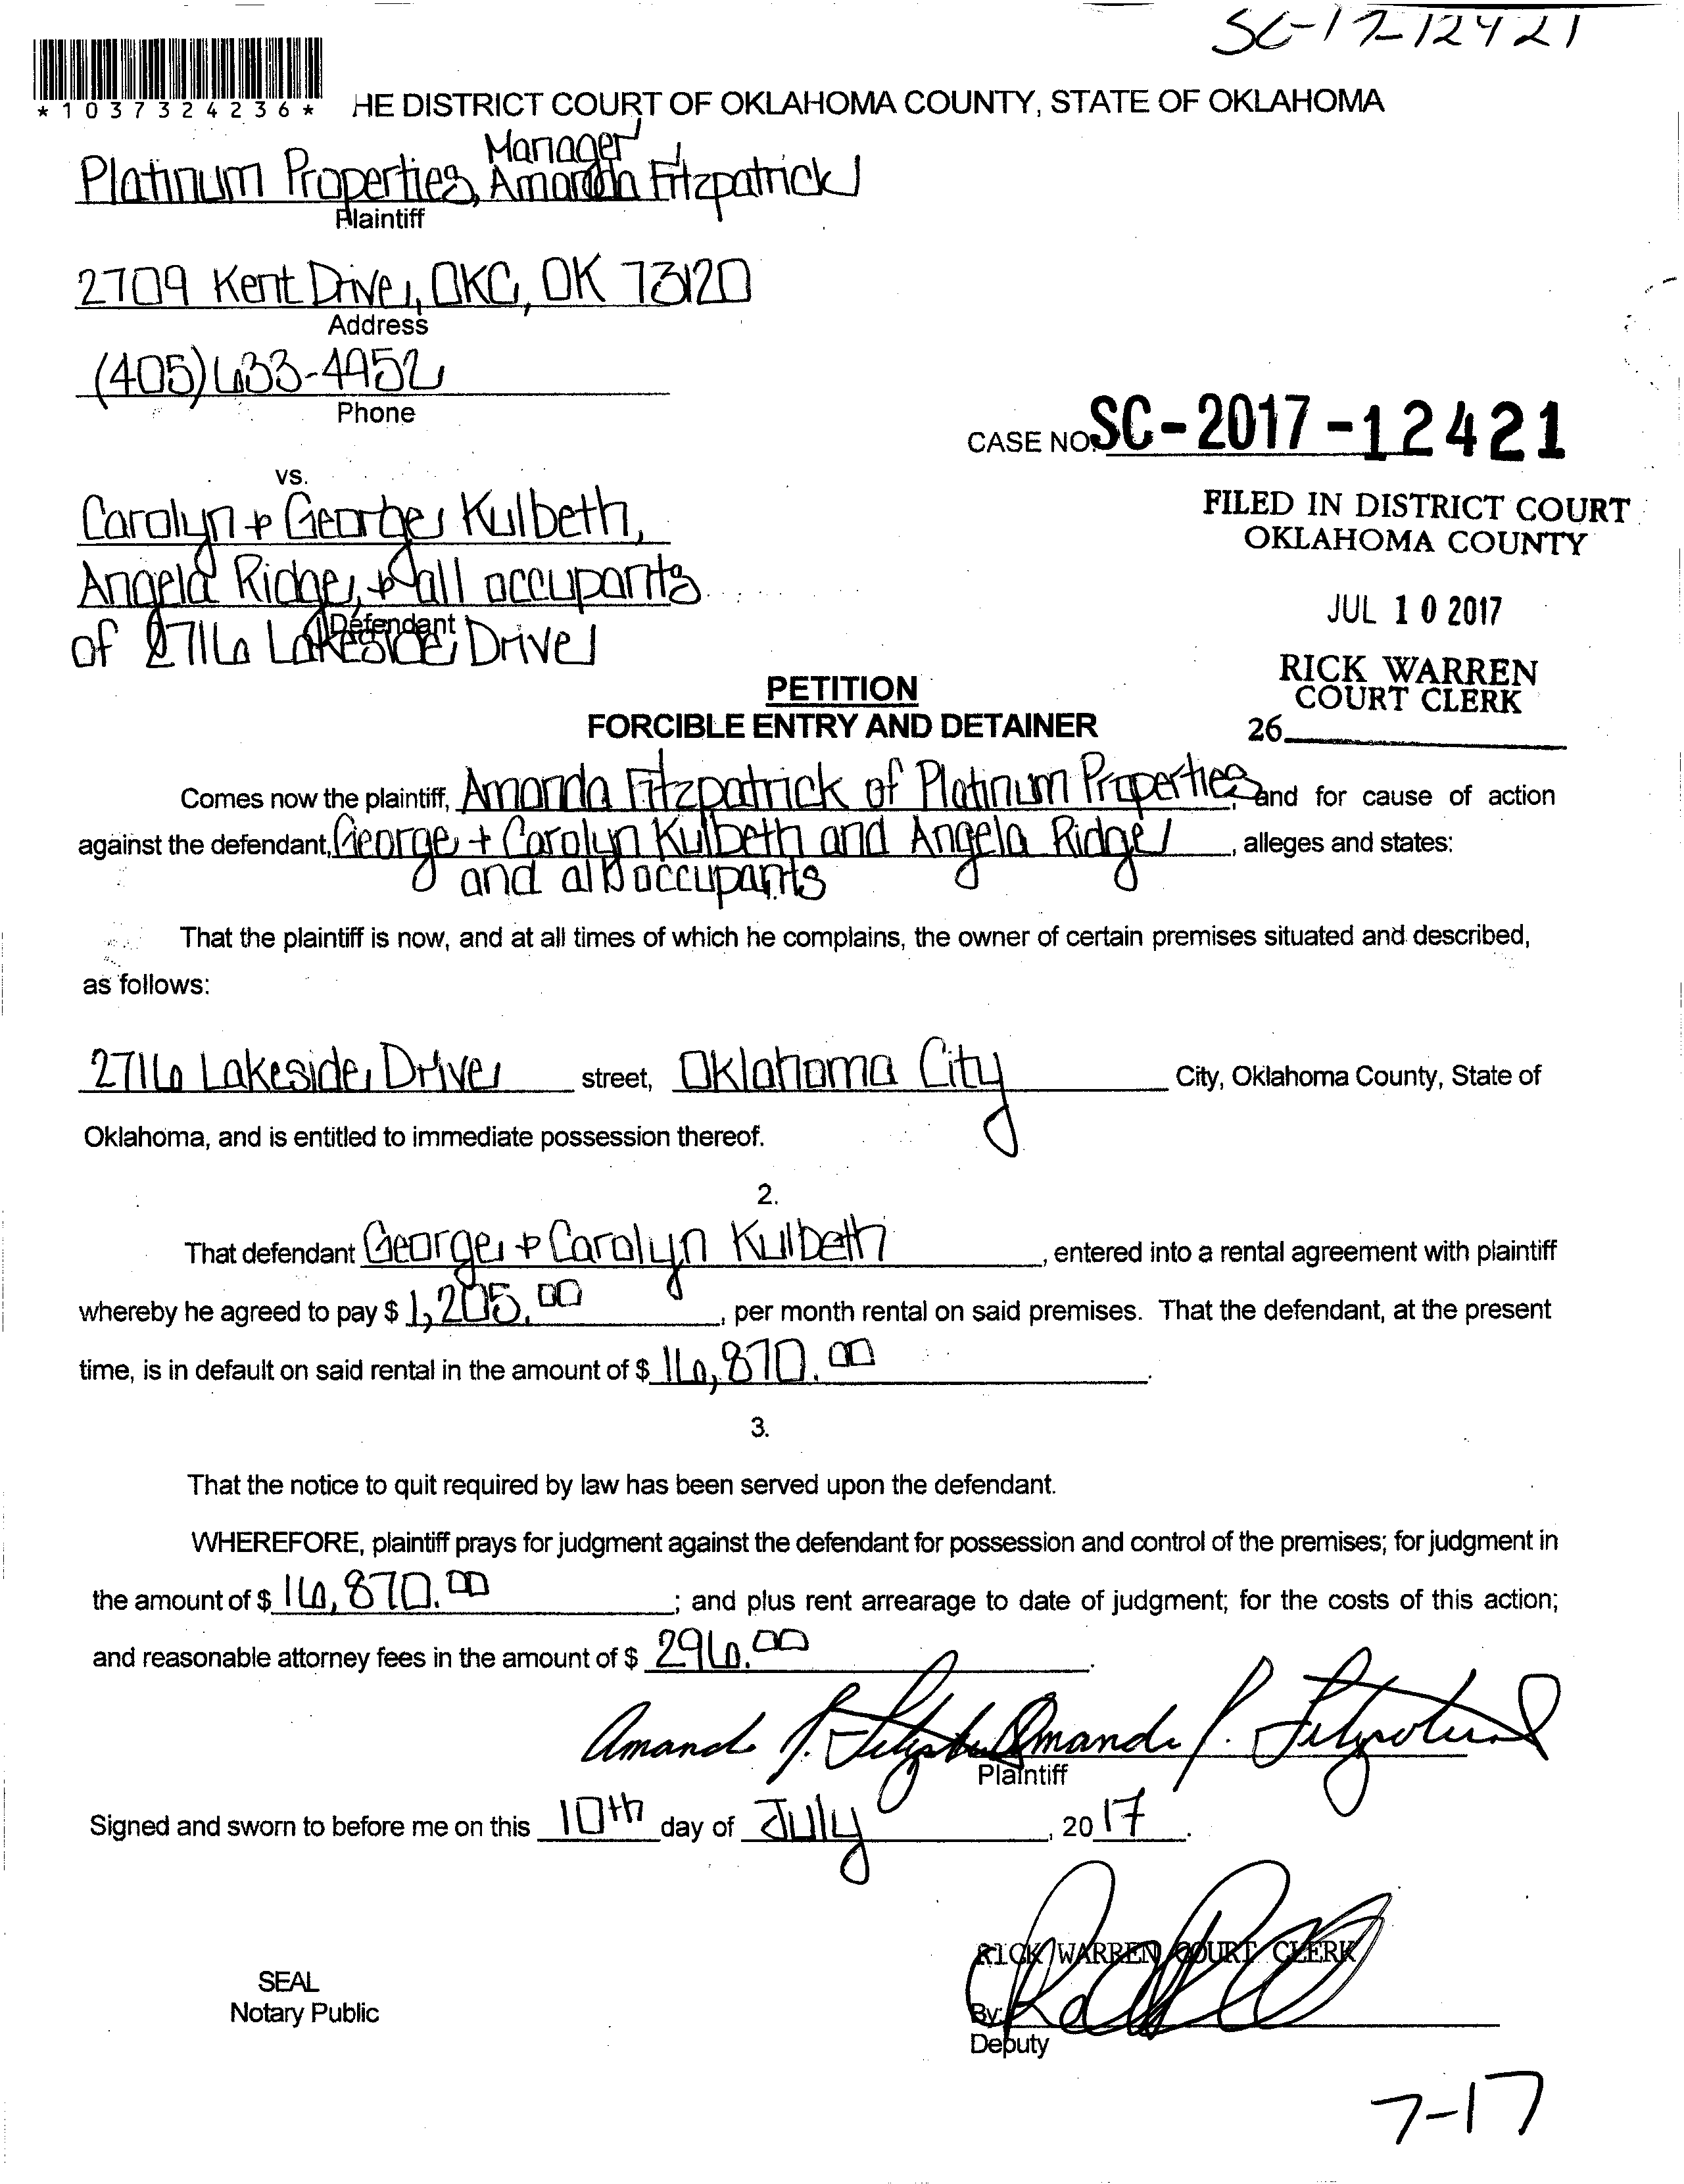 SC-17-12421
*1037324236*
HE DISTRICT COURT OF OKLAHOMA COUNTY, STATE OF OKLAHOMA
Manager
Platinum Properties, Amanda Fitzpatrick
Plaintiff
2709 Kent Drive, OKC, OK 73120
Address
(405) 633-4952
Phone
CASE NO. SC-2017-12421
vs.
Carolyn + George Kulbeth,
Angela Ridge, + all occupants
Defendant
of 2716 Lakeside Drive
FILED IN DISTRICT COURT
OKLAHOMA COUNTY
JUL 10 2017
RICK WARREN
COURT CLERK
26
PETITION
FORCIBLE ENTRY AND DETAINER
Comes now the plaintiff, Amanda Fitzpatrick of Platinum Properties, and for cause of action
against the defendant, George + Carolyn Kulbeth and Angela Ridge, alleges and states:
and all occupants
That the plaintiff is now, and at all times of which he complains, the owner of certain premises situated and described,
as follows:
2716 Lakeside Drive street, Oklahoma City City, Oklahoma County, State of
Oklahoma, and is entitled to immediate possession thereof.
2.
That defendant George + Carolyn Kulbeth, entered into a rental agreement with plaintiff
whereby he agreed to pay $ 1,205.00, per month rental on said premises. That the defendant, at the present
time, is in default on said rental in the amount of $ 16,870.00.
3.
That the notice to quit required by law has been served upon the defendant.
WHEREFORE, plaintiff prays for judgment against the defendant for possession and control of the premises; for judgment in
the amount of $ 16,870.00; and plus rent arrearage to date of judgment; for the costs of this action;
and reasonable attorney fees in the amount of $ 296.00.
Amanda P. Fitzpatrick Amanda P. Fitzpatrick
Plaintiff
Signed and sworn to before me on this 10th day of July, 2017.
RICK WARREN COURT CLERK
SEAL
Notary Public
By:
Deputy
7-17